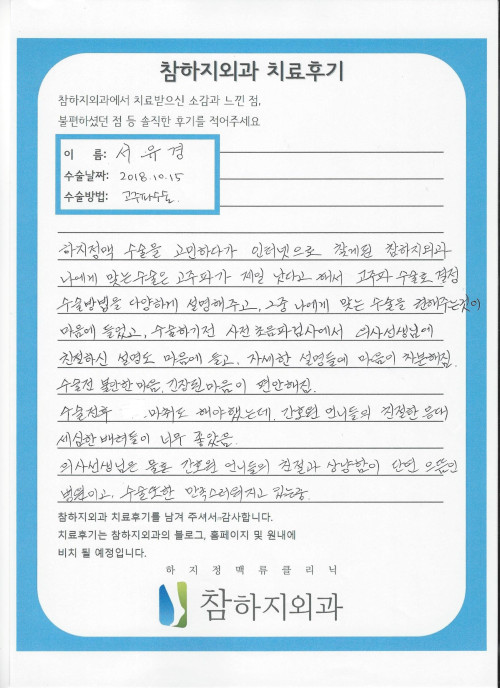 참하지외과 치료후기
참하지외과에서 치료받으신 소감과 느낀 점,
불편하셨던 점 등 솔직한 후기를 적어주세요
이 름: 서유경
수술날짜: 2018.10.15
수술방법: 고주파수술
하지정맥 수술을 고민하다가 인터넷으로 찾게된 참하지외과
나에게 맞는 수술은 고주파가 제일 낫다고 해서 고주파 수술로 결정
수술방법을 다양하게 설명해주고, 그중 나에게 맞는 수술을 권해주는것이
마음에 들었고, 수술하기전 사전 초음파검사에서 의사선생님에
친절하신 설명도 마음에 들고, 자세한 설명들에 마음이 차분해짐.
수술전 불안한 마음, 긴장된 마음이 편안해짐.
수술전후 마취도 해야했는데, 간호원 언니들의 친절한 응대
세심한 배려들이 너무 좋았음
의사선생님은 물론 간호원 언니들의 친절과 상냥함이 단연 으뜸인
병원이고, 수술또한 만족스러워지고 있는중.
참하지외과 치료후기를 남겨 주셔서 감사합니다.
치료후기는 참하지외과의 블로그, 홈페이지 및 원내에
비치 될 예정입니다.
하지정맥류클리닉
참하지외과